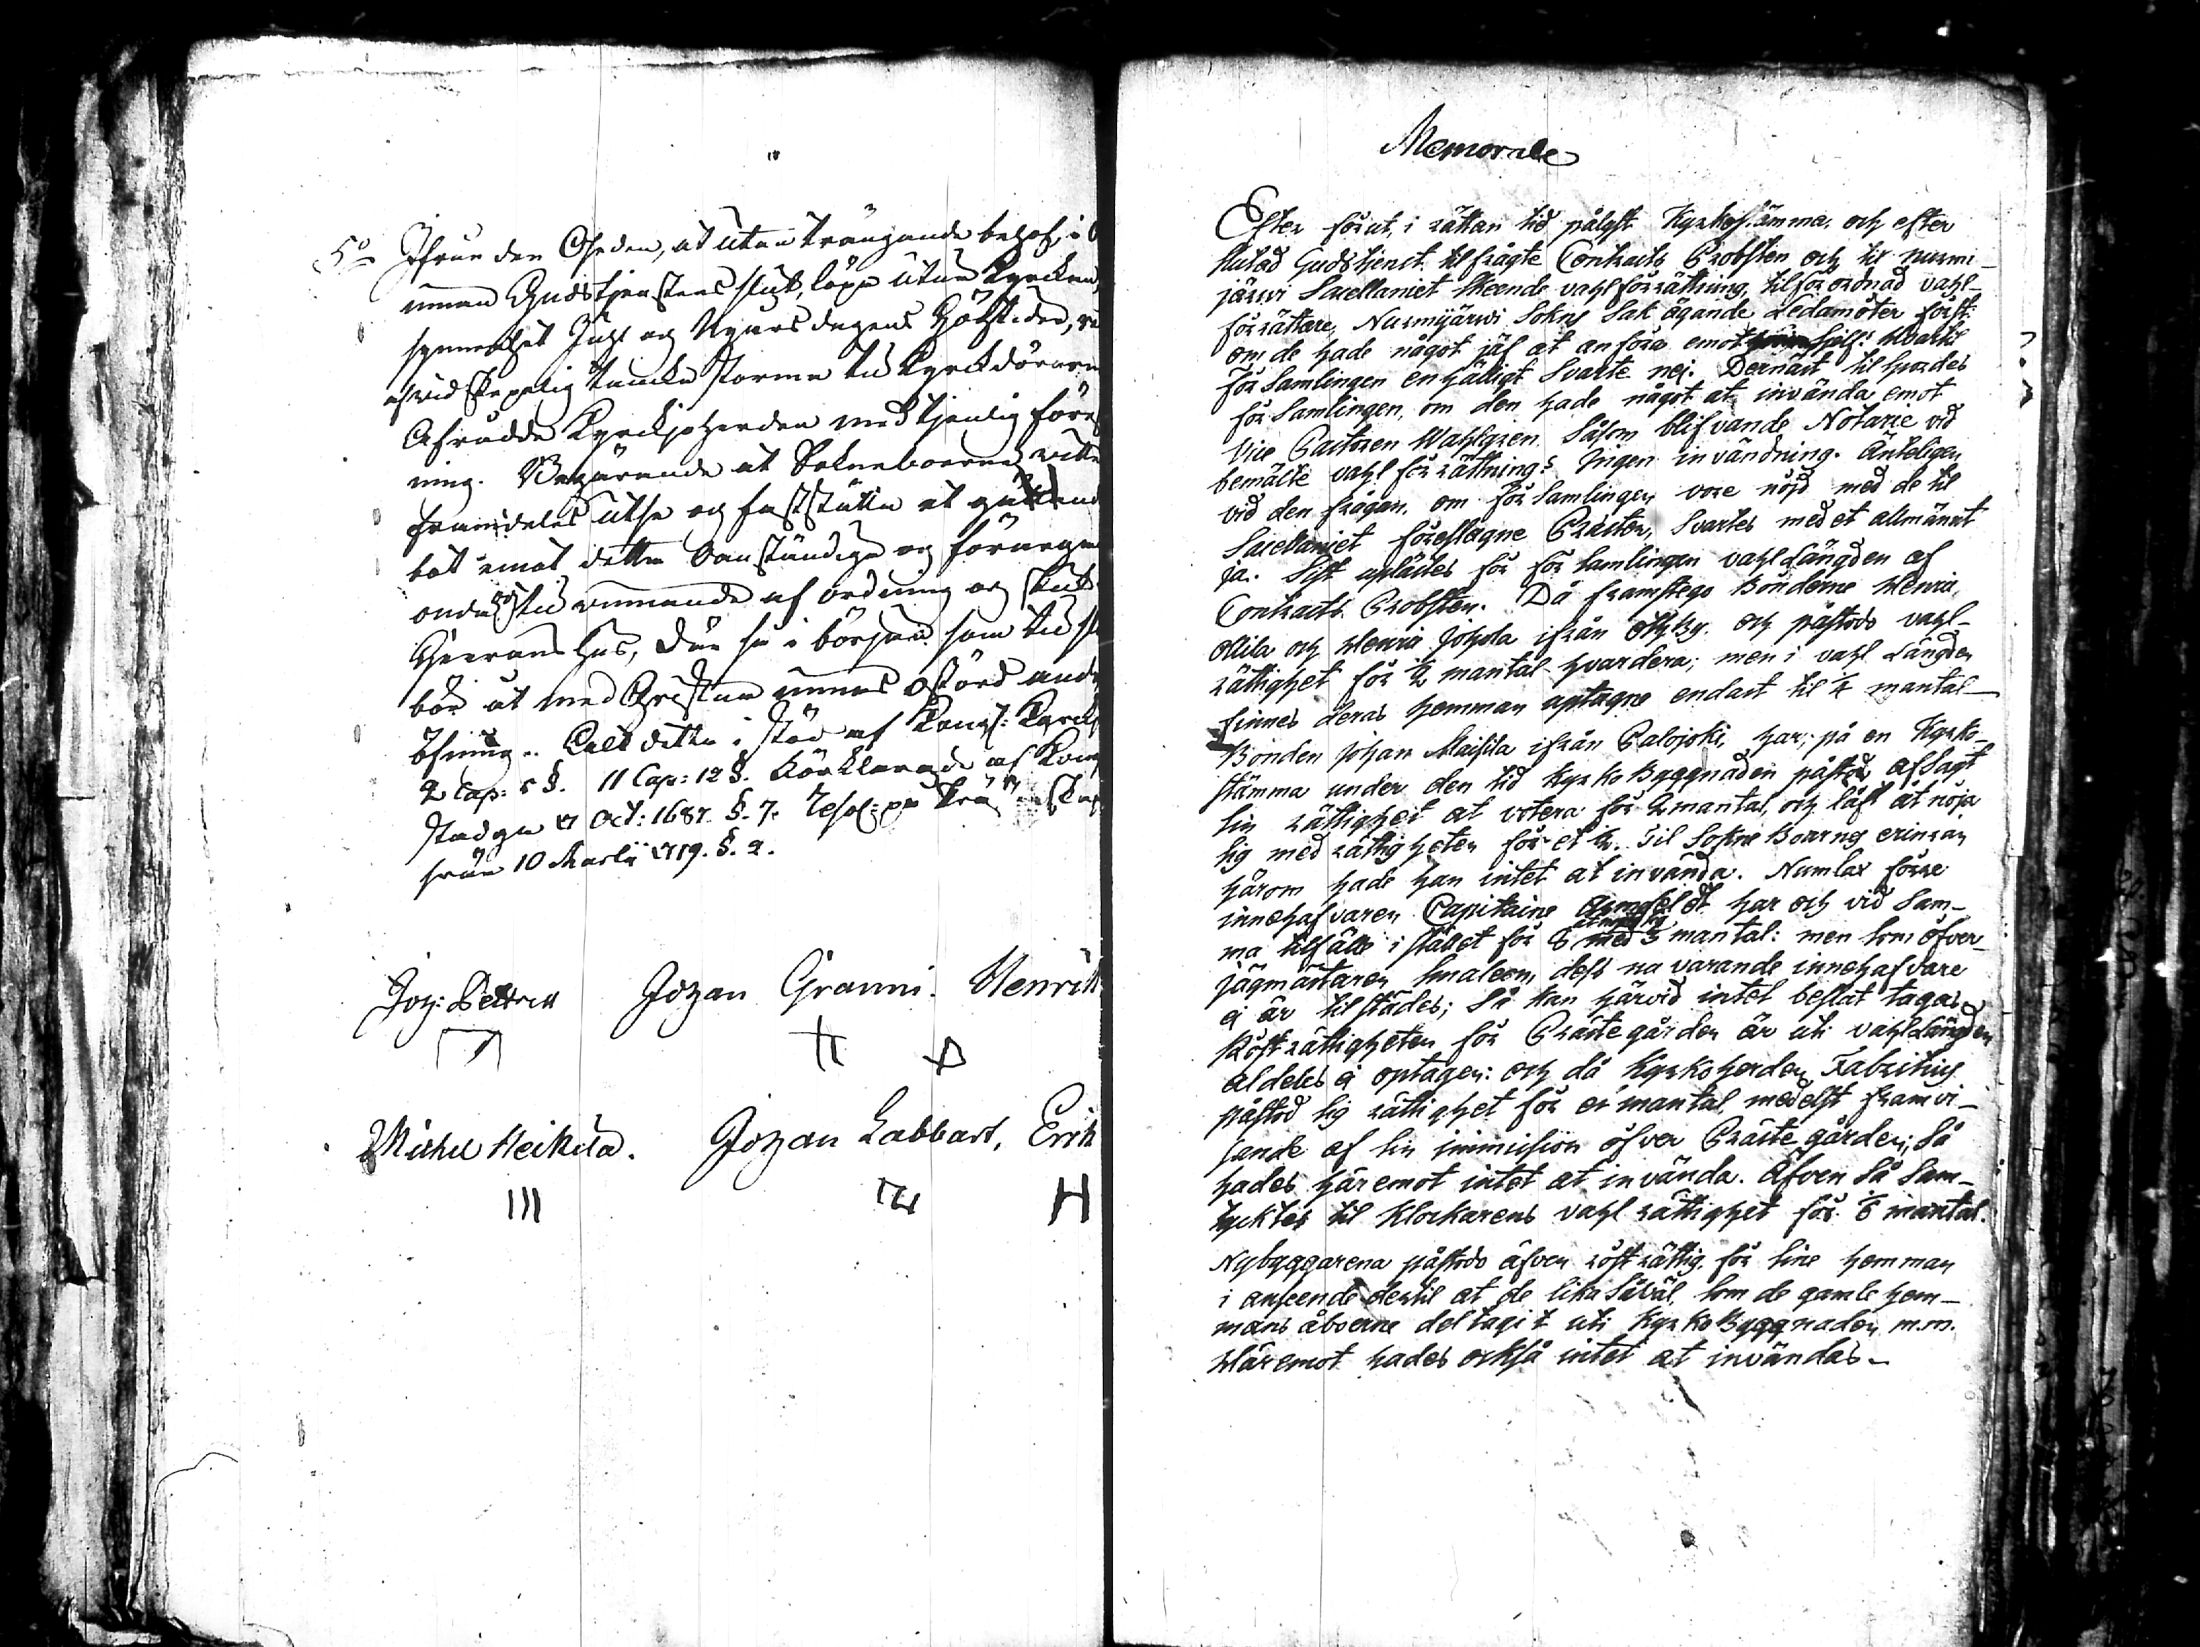 5o Ifrån den Oseden, at utan trängande behof, i
innan Gudstjenstens slut, löpa utur Kyrckan,
synnerhet Juhl og Nyårs dagens Högtider,
tumla storma til Kyrckdörarna
Afrådde Kyrckjoherden med tjenlig före
ning. Begärande at Sokneboerna
framdeles utse og faststälta et
bot emot detta Oanständiga og
onda til vinnande af ordning og skick
Herrans hus, där så i början som til
bör at med Christna innas ostörd
öfning. Alt detta i stöd af Kongl: Kyrck
2 Cap: 5 §. 11 Cap: 12 §. Förklarade af Kong
Stadga Oct: 1687. §. 7. Resol: på
från 10 Martii 1719. §. 2.
Joh: Johan Granni. Henrik
Michel Heikila. Johan Labbart, Erik
III H
Memoriale
Efter förut, i rättan tid pålyst Kyrkostämma, och efter
slutad Gudstjenst tilfrågte Contracts Probsten och til Nurmi-
järwi Sacellaniet skeende vahlförrättning, tilförordnad vahl-
förrättare, Nurmijärwi Sokns Sak ägande Ledamöter först:
om de hade något jäf at anföra emot sjelf: hvartil
Församlingen enhälligt Svarte nej. Dernäst tilspordes
församlingen, om den hade något at invända emot
Vice Pastoren Wahlgren, Såsom blifvande Notarie vid
bemälte vahlförrättning? Ingen invändning. Änteligen
vid den frågan, om församlingen vore nöjd med de til
Sacellaniet föreslagne Präster, Svartes med et allmänt
ja. Sist uplästes för församlingen vahl Längden af
Contracts Probsten. Då framstego Bönderne Henric
Ollila och Henric Johola ifrån och påstodo vahl-
rättighet för ½ mantal hvardera; men i vahl Längden
finnes deras hemman uptagne endast til ¼ mantal
Bonden Johan Maisila ifrån Palojoki, har, på en Kyrko-
stämma under den tid KyrkoByggnaden påstod, afsagt
sin rättighet at votera för mantal, och låst at nöja
sig med rättigheten för et ½. Til Sokne Boarnes erinran
härom hade han intet at invända. Numlax förre
innehafvaren Capitaine Armfeldt har och vid sam-
ma tilfälle i stället för mantal: men som öfver-
jägmästaren dess nu varande innehafvare
ei är tilstädes; Så kan härvid intet beslut tagas
Röst rättigheten för Prästegården är uti vahl Längden
aldeles ei optagen: och då Kyrkoherden Fabritius
påstod sig rättighet för et mantal, medelst framvi-
sande af sin immission öfver Prästegården; Så
hades häremot intet at invända. Äfven Så Sam-
tycktes til Klockarens vahl rättighet för mantal.
Nybyggarena påstodo äfven röst rättig. för sine hemman
i anseende dertil at de lika Såväl, som de gamle hem-
mans åboerne deltagit uti KyrkoByggnaden m.m.
Häremot hades också intet at invändas.